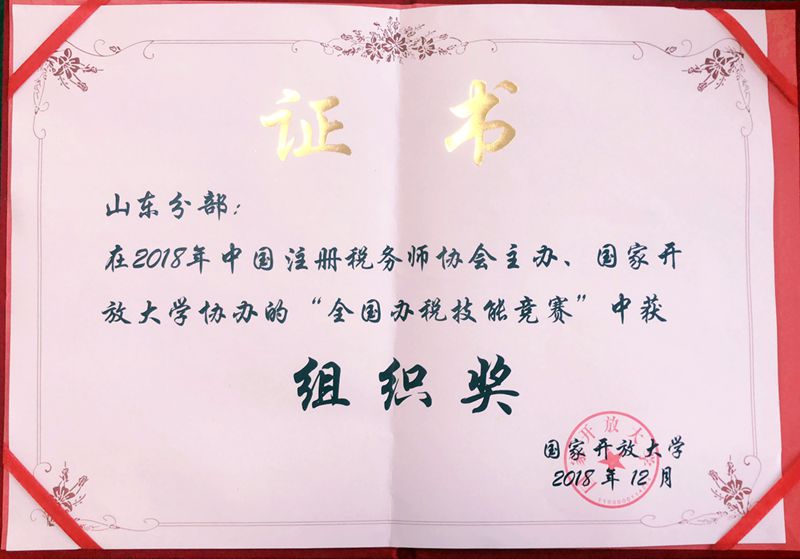 证书
山东分部：
在2018年中国注册税务师协会主办、国家开
放大学协办的“全国办税技能竞赛”中获
组织奖
国家开放大学
2018年12月